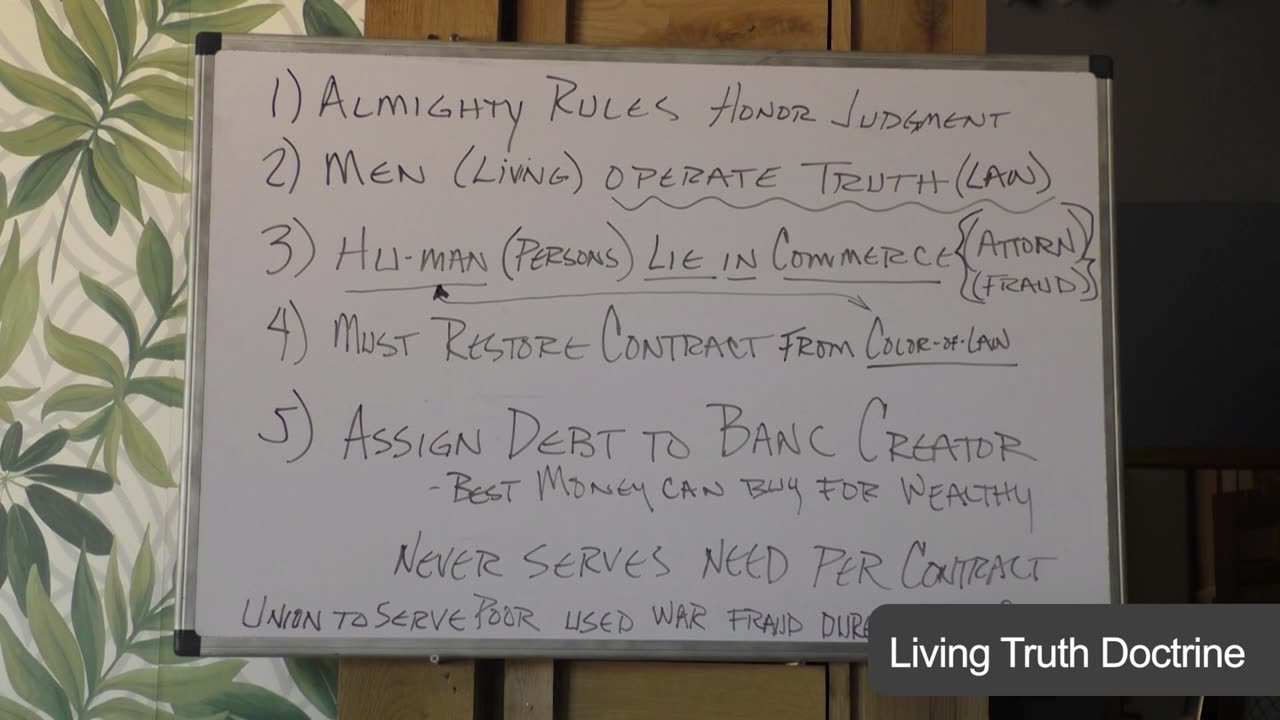 1) ALMIGHTY RULES HONOR JUDGMENT
2) MEN (LIVING) OPERATE TRUTH (LAW)
3) HU-MAN (PERSONS) LIE IN COMMERCE {(ATTORN) (FRAUD)}
4) MUST RESTORE CONTRACT FROM COLOR-OF-LAW
5) ASSIGN DEBT TO BANC CREATOR
- BEST MONEY CAN BUY FOR WEALTHY
NEVER SERVES NEED PER CONTRACT
UNION TO SERVE POOR USED WAR FRAUD
Living Truth Doctrine